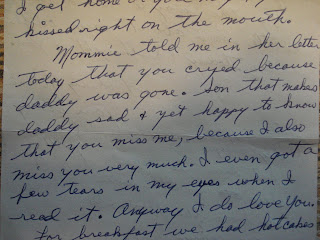 I get home
kissed right on the mouth.
Mommie told me in her letter
today that you cryed because
daddy was gone. Son that makes
daddy sad & yet happy to know
that you miss me, because I also
miss you very much. I even got a
few tears in my eyes when I
read it. Anyway I do love you.
For breakfast we had hotcakes